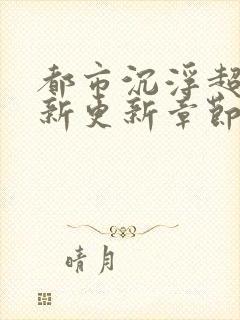 都市沉浮超
新更新章節
晴月